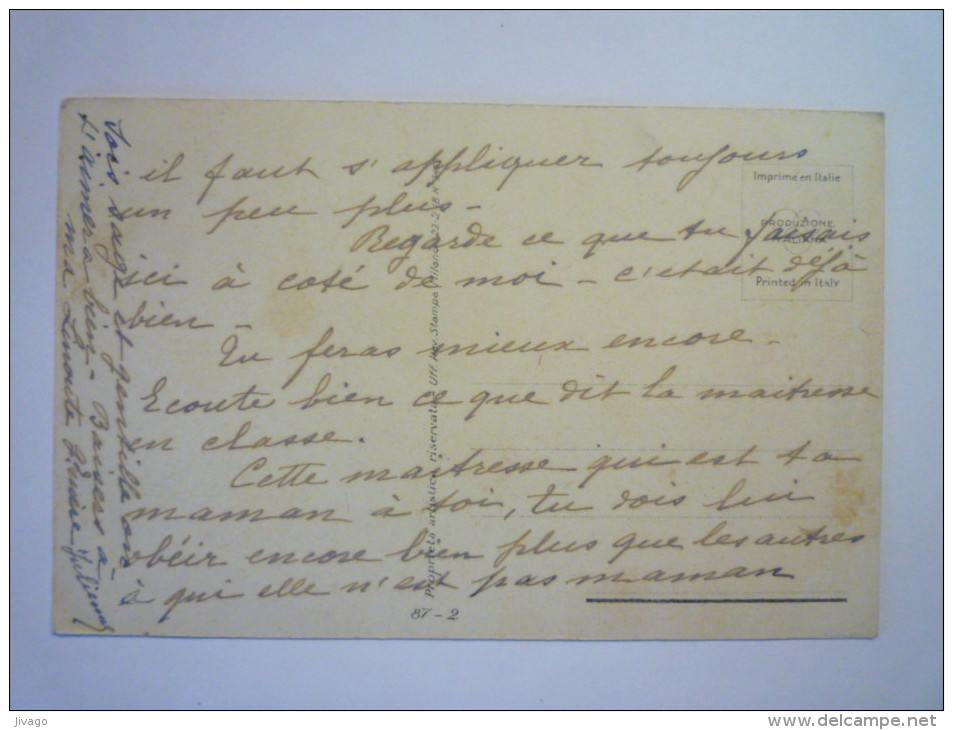 il faut s'appliquer toujours
un peu plus -
Regarde ce que tu faisais
ici à coté de moi - c'etait déjà
bien -
Tu feras mieux encore -
Ecoute bien ce que dit la maitresse
en classe.
Cette maitresse qui est ta
maman à toi, tu dois lui
obéir encore bien plus que les autres
à qui elle n'est pas maman
Sois sage et gentille on
t'aimera bien - Baisers à
ma Linoute Julienne
Imprimé en Italie
PRODUZIONE
ITALIANA
Printed in Italy
Proprietà artistica riservata - Uff. Rev. Stampa Milano
87-2
Jivago
www.delcampe.net